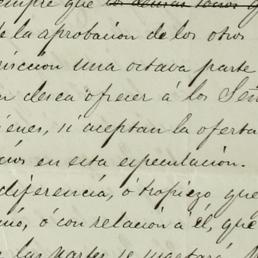 empre que los demas socios q
de la aprobacion de los otros
riccion una octava parte
n desea ofrecer á los Señ
ienes, si aceptan la oferta
cios en esta especulacion.
diferencia, ó tropiezo que
mó, o con relacion á él, que
las partes se sugetará